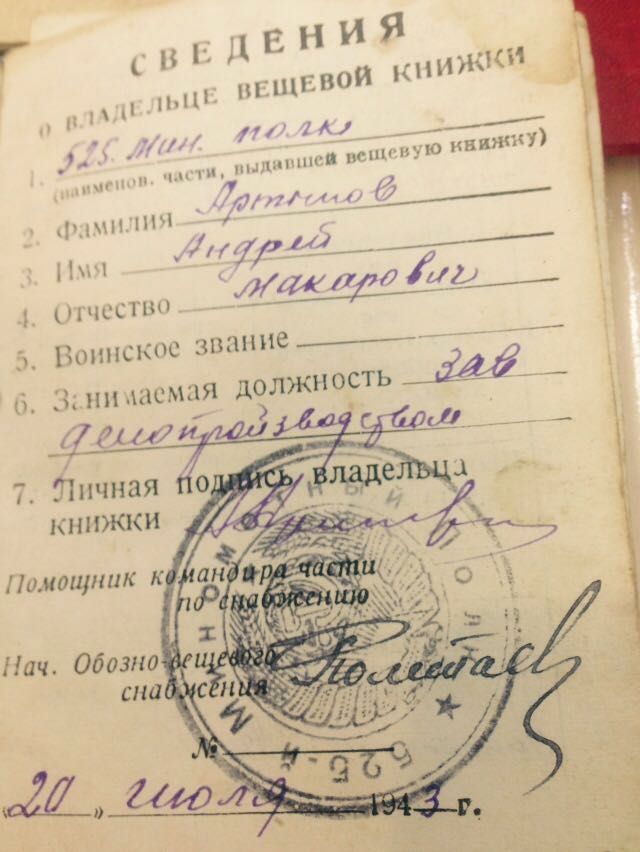 СВЕДЕНИЯ
О ВЛАДЕЛЬЦЕ ВЕЩЕВОЙ КНИЖКИ
1. 525. мин. полк
(наименов. части, выдавшей вещевую книжку)
2. Фамилия Артымов
3. Имя Андрей
4. Отчество Макарович
5. Воинское звание
6. Занимаемая должность зав
делопроизводством
7. Личная подпись владельца
книжки
Помощник командира части
по снабжению
Нач. Обозно-вещевого
снабжения
№
"20" июля 1943 г.
525-Й МИНОМЕТНЫЙ ПОЛК